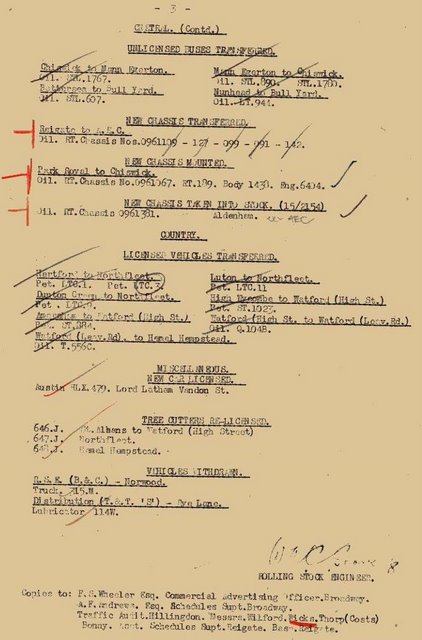 - 3 -
CENTRAL. (Contd.)
UNLICENSED BUSES TRANSFERRED.
Chiswick to Mann Egerton.
Oil. STL.1767.
Battersea to Bull Yard.
Oil. STL.607.
Mann Egerton to Chiswick.
Oil. STL.890. STL.1780.
Nunhead to Bull Yard.
Oil. LT.944.
NEW CHASSIS TRANSFERRED.
Reigate to A.E.C.
Oil. RT.Chassis Nos.0961109 - 127 - 099 - 091 - 142.
NEW CHASSIS MOUNTED.
Park Royal to Chiswick.
Oil. RT.Chassis No.0961067. RT.189. Body 1438. Eng.6404.
NEW CHASSIS TAKEN INTO STOCK. (15/2154)
Oil. RT.Chassis 0961381. Aldenham. AEC
COUNTRY.
LICENSED VEHICLES TRANSFERRED.
Hertford to Northfleet.
Pet. LTC.1. Pet. LTC.3.
Dunton Green to Northfleet.
Pet. LTC.
Amersham to Watford (High St.)
Pet. ST.084.
Watford (Leav.Rd.) to Hemel Hempstead.
Oil. T.556C.
Luton to Northfleet.
Pet. LTC.11
High Wycombe to Watford (High St.)
Pet. ST.1023.
Watford (High St. to Watford (Leav.Rd.)
Oil. Q.104B.
MISCELLANEOUS.
NEW CAR LICENSED.
Austin HLX.479. Lord Latham Vandon St.
TREE CUTTERS RE-LICENSED.
646.J. St. Albans to Watford (High Street)
647.J. Northfleet.
648.J. Hemel Hempstead.
VEHICLES WITHDRAWN.
R.S.E. (B.&C.) - Norwood.
Truck. 215.M.
Distribution (T.&T. 'S') - Rye Lane.
Lubricator 114W.
ROLLING STOCK ENGINEER.
Copies to: F.S.Wheeler Esq. Commercial Advertising Officer.Broadway.
A.F.Andrews. Esq. Schedules Supt.Broadway.
Traffic Audit.Hillingdon. Messrs.Wilford.Hicks.Thorp(Costs)
Bonny. Asst. Schedules Supt.Reigate. Reigate.